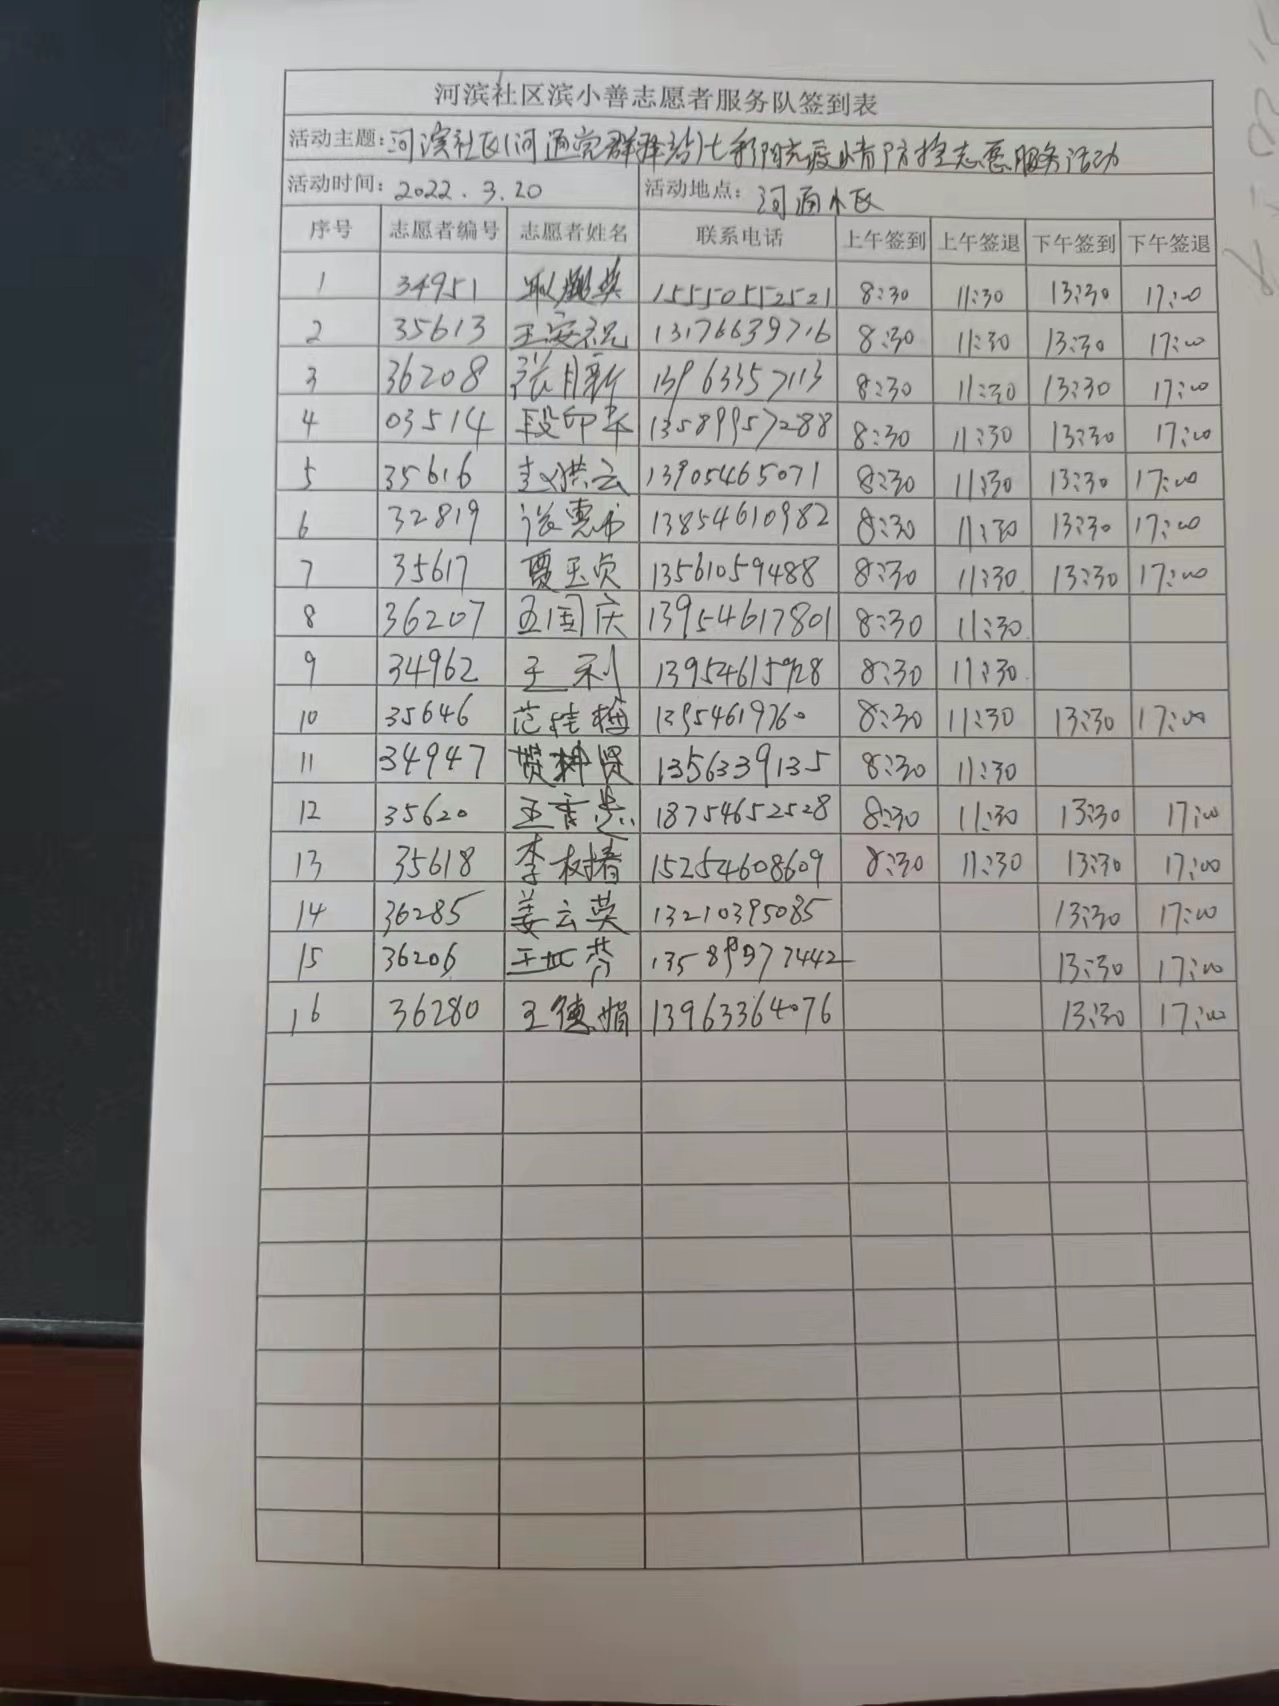 河滨社区滨小善志愿者服务队签到表
活动主题:河滨社区(河通党群驿站)七彩阳光疫情防控志愿服务活动
活动时间: 2022.3.20 活动地点: 河通小区
序号 志愿者编号 志愿者姓名 联系电话 上午签到 上午签退 下午签到 下午签退
1 34951 15550552521 8:30 11:30 13:30 17:00
2 35613 王安祝 13176639716 8:30 11:30 13:30 17:00
3 36208 张月新 13963357113 8:30 11:30 13:30 17:00
4 03514 段印华 13589957288 8:30 11:30 13:30 17:00
5 35616 赵洪云 13905465071 8:30 11:30 13:30 17:00
6 32819 13854610982 8:30 11:30 13:30 17:00
7 35617 贾玉贞 13561059488 8:30 11:30 13:30 17:00
8 36207 王国庆 13954617801 8:30 11:30
9 34962 王利 13954615928 8:30 11:30
10 35646 范桂梅 13954619760 8:30 11:30 13:30 17:00
11 34947 1356339135 8:30 11:30
12 35620 18754652528 8:30 11:30 13:30 17:00
13 35618 李树椿 15254608609 8:30 11:30 13:30 17:00
14 36285 姜云英 13210395085 13:30 17:00
15 36206 13589977442 13:30 17:00
16 36280 王德娟 13963364076 13:30 17:00